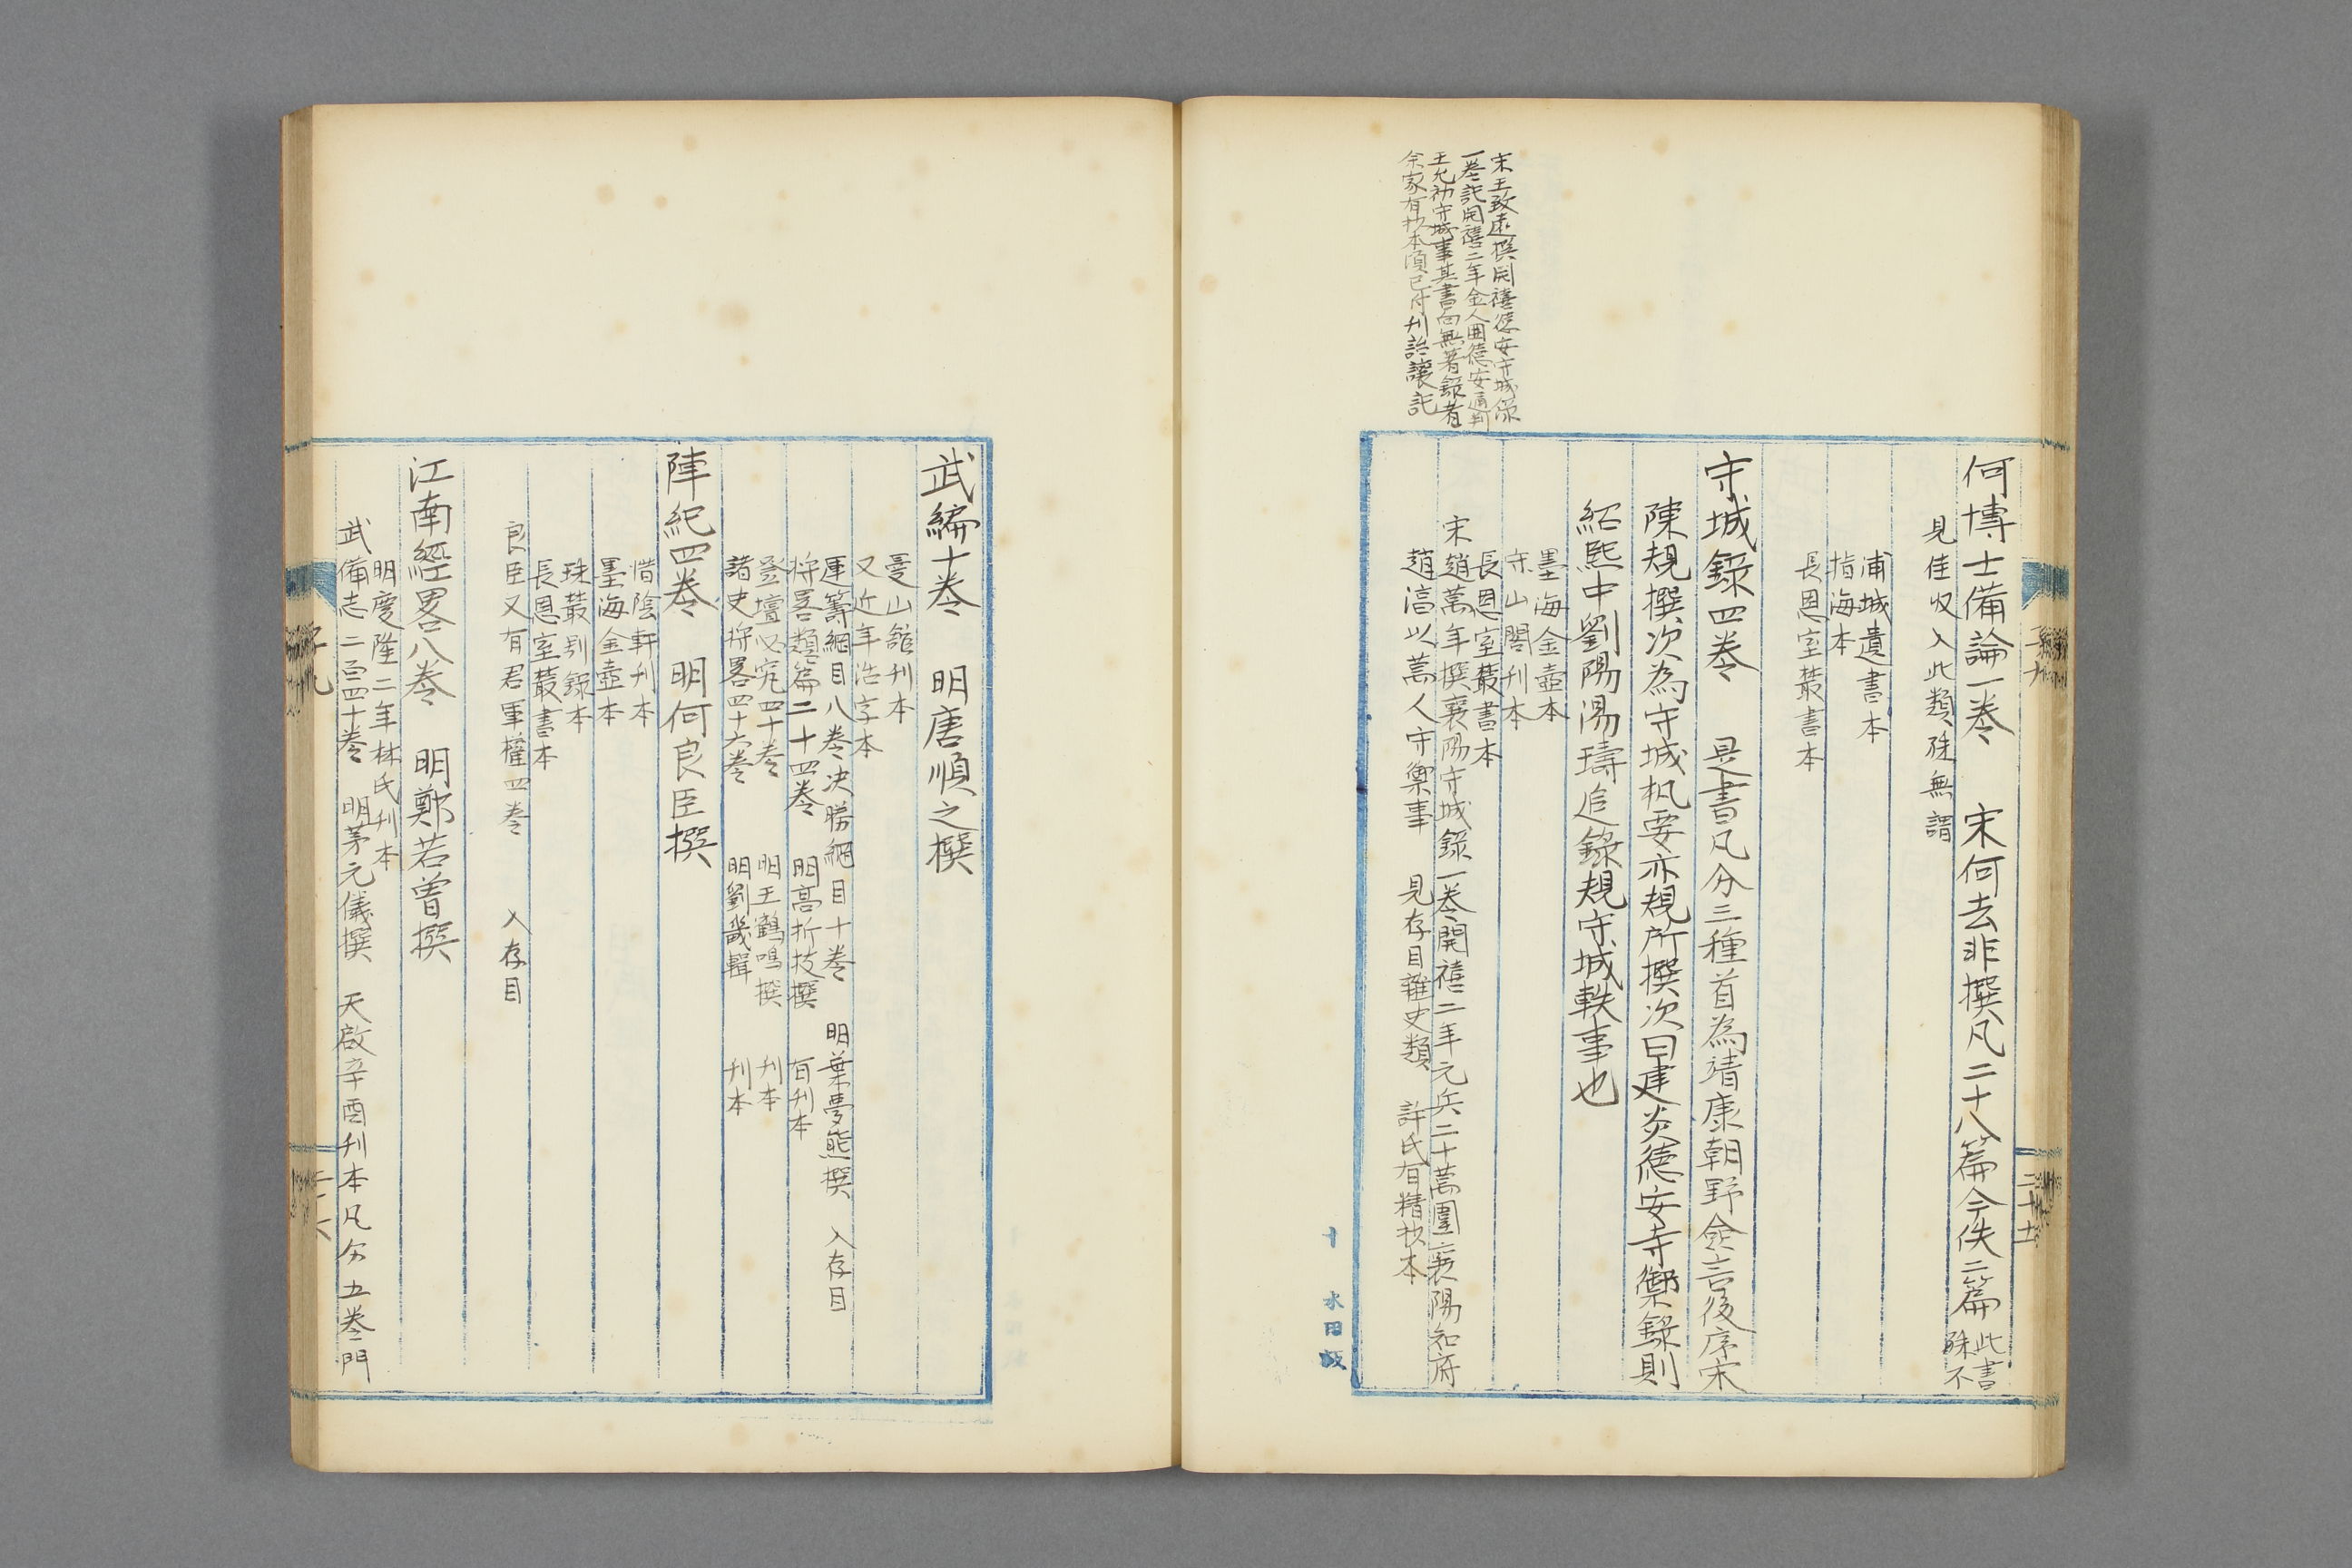 何博士備論一卷　宋何去非撰凡二十八篇今佚二篇
此書
殊不
見佳收入此類殊無謂
浦城遺書本
指海本
長恩室叢書本
守城錄四卷　是書凡分三種首為靖康朝野僉言後序宋
陳規撰次為守城机要亦規所撰次曰建炎德安守禦錄則
紹熙中劉陽湯璹追錄規守城軼事也
墨海金壺本
守山閣刊本
長恩室叢書本
宋趙萬年撰襄陽守城錄一卷開禧二年元兵二十萬圍襄陽知府
趙淳以萬人守禦事　見存目雜史類　許氏有精抄本
宋王致遠撰開禧德安守城錄
一卷記開禧二年金人圍德安通判
王允初守城事其書向無著錄者
余家有抄本頃已付刊詒讓記
十　水田版
二十七
武編十卷　明唐順之撰
曼山館刊本
又近年活字本
運籌綱目八卷決勝綱目十卷　明葉夢熊撰　入存目
將畧類篇二十四卷　明高折枝撰　有刊本
登壇必究四十卷　明王鶴鳴撰　刊本
諸史將畧四十六卷　明劉畿輯　刊本
陣紀四卷　明何良臣撰
惜陰軒刊本
墨海金壺本
珠叢別錄本
長恩室叢書本
良臣又有君軍權四卷　入存目
江南經畧八卷　明鄭若曾撰
明慶隆二年林氏刊本
武備志二百四十卷　明茅元儀撰　天啟辛酉刊本凡分五卷門
子九